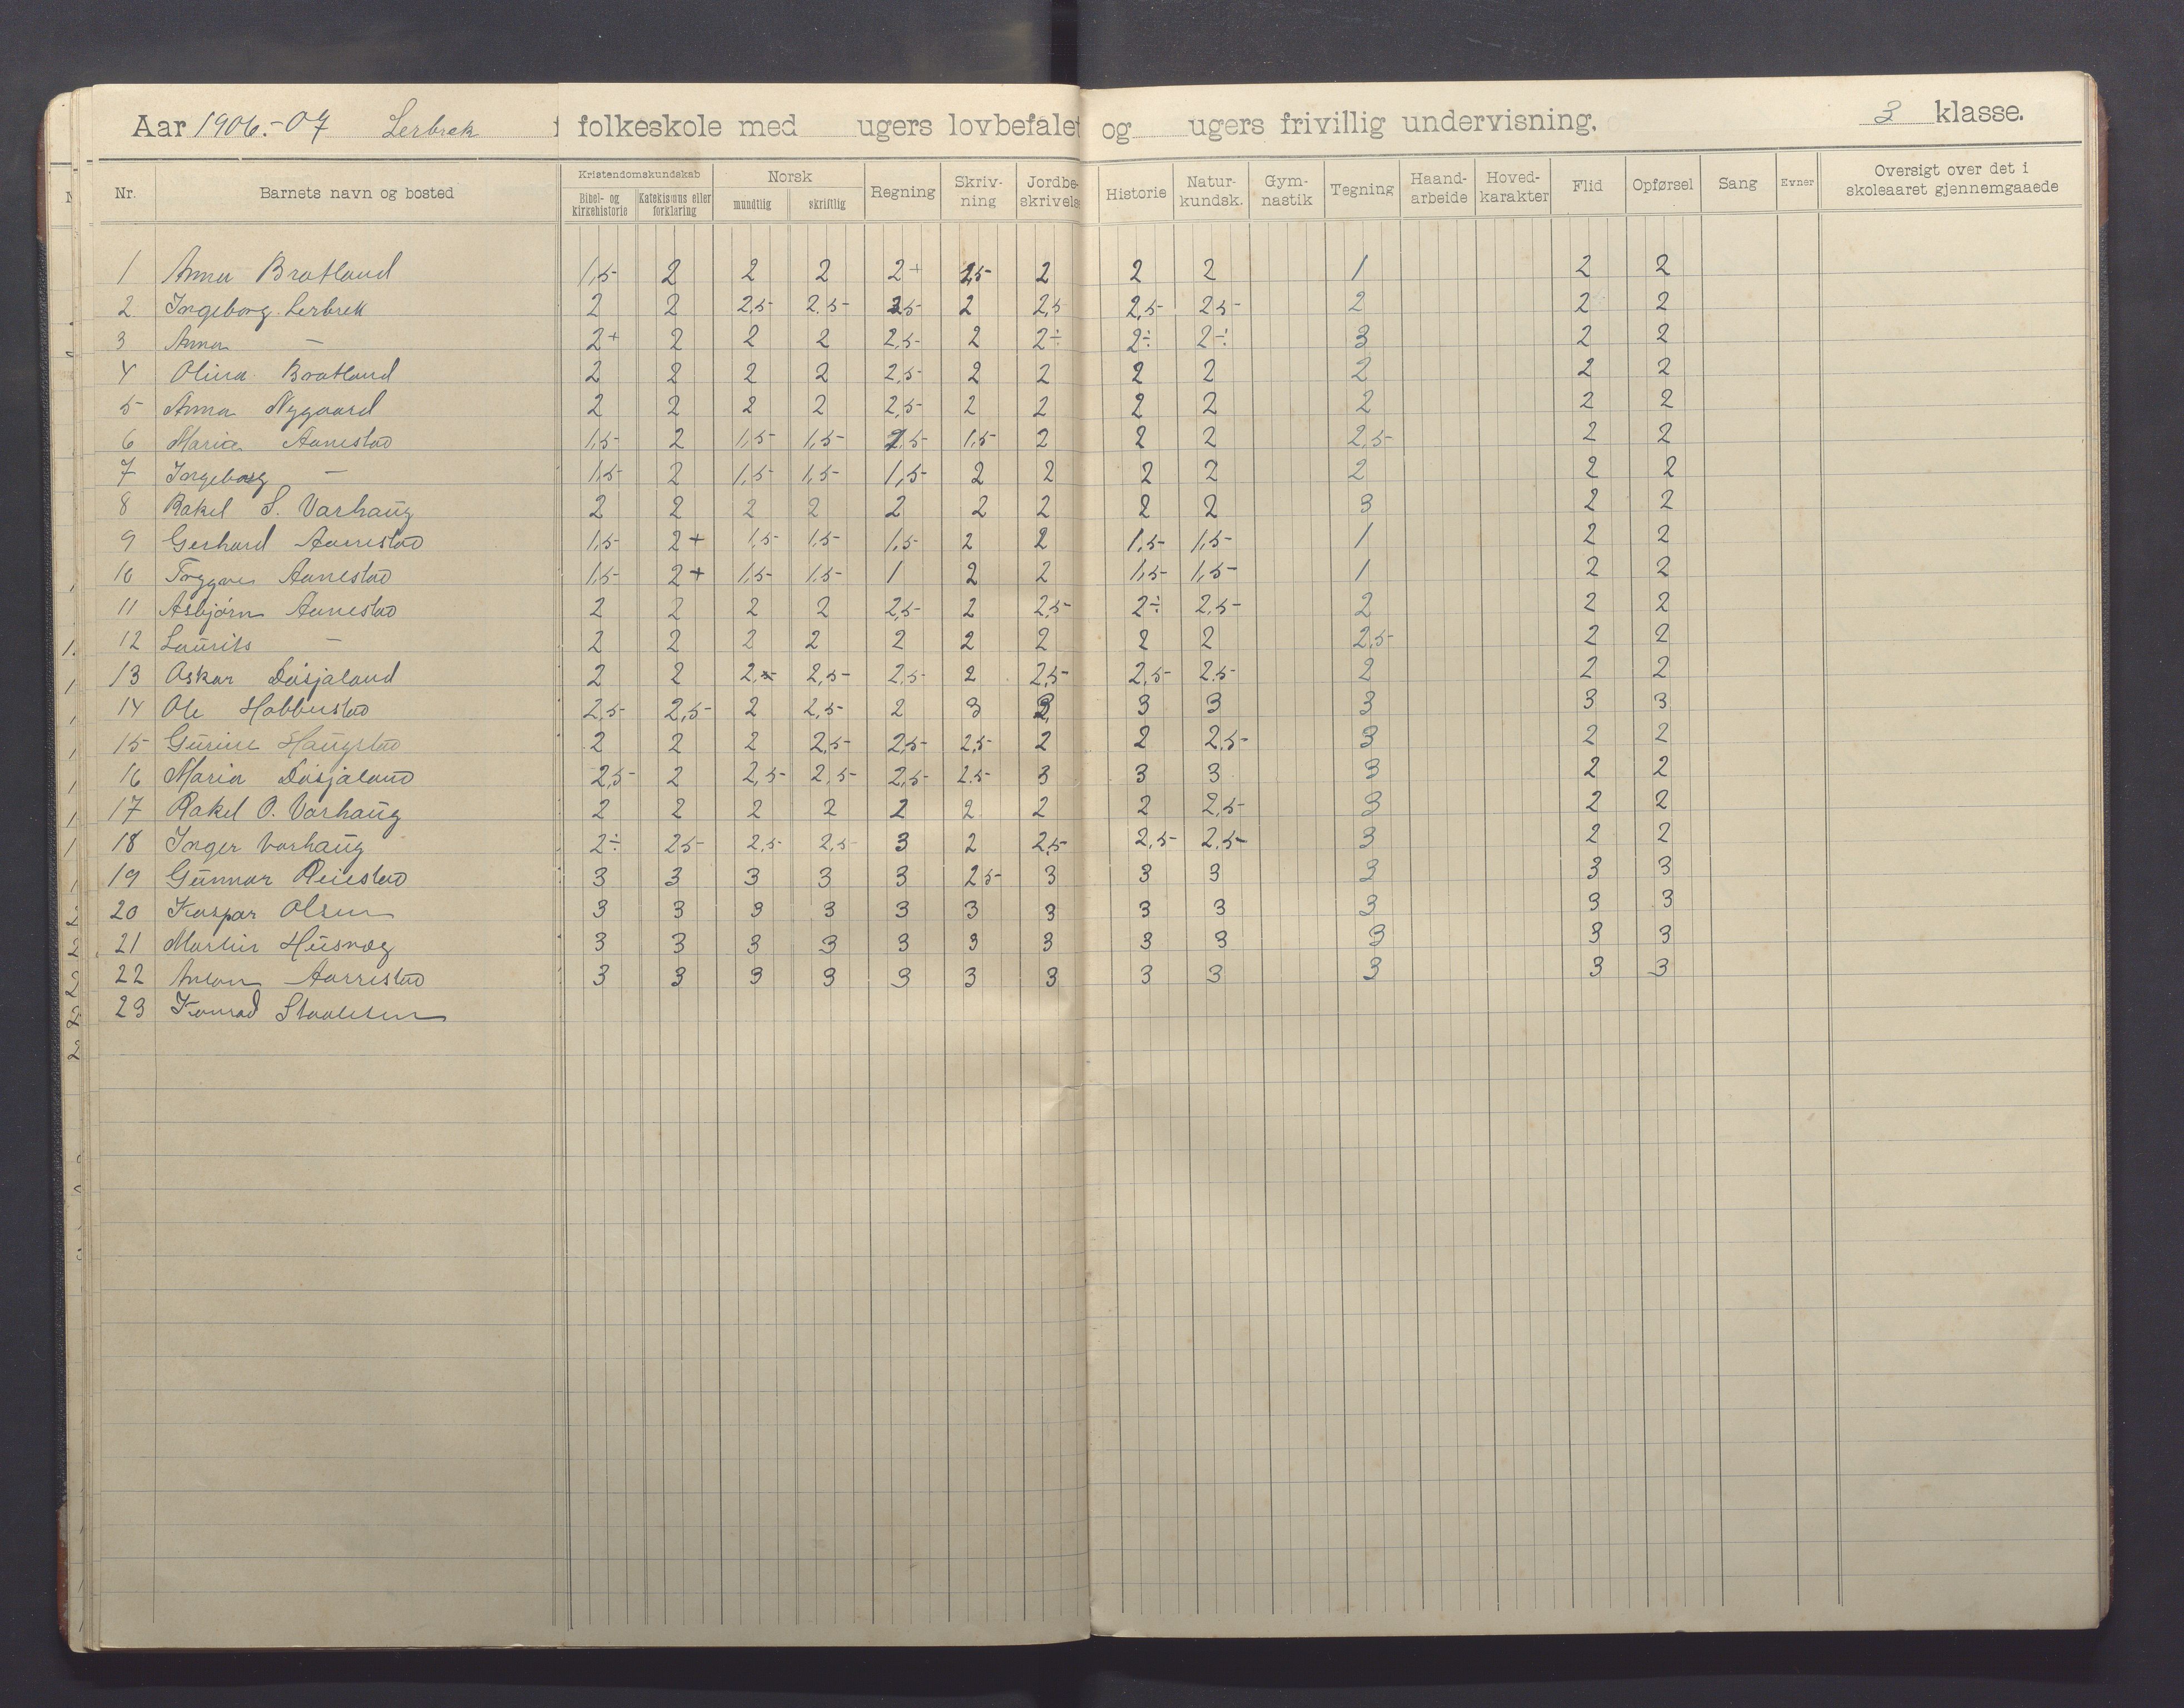 Aar 1906.-07 Lerbrek folkeskole med ugers lovbefalet og ugers frivillig undervisning. 3 klasse.
Nr. Barnets navn og bosted Kristendomskundskab Bibel- og kirkehistorie Katekismus eller forklaring Norsk mundtlig skriftlig Regning Skriv-ning Jordbe-skrivelse Historie Natur-kundsk. Gym-nastik Tegning Haand-arbeide Hoved-karakter Flid Opførsel Sang Evner Oversigt over det i skoleaaret gjennemgaaede
1 Anna Bratland 1,5 2 2 2 2+ 2,5 2 2 2 1 2 2
2 Ingeborg Lerbrek 2 2 2,5 2,5 2,5 2 2,5 2,5 2,5 2 2 2
3 Anna — 2+ 2 2 2 2,5 2 2÷ 2÷ 2÷ 3 2 2
4 Olina Bratland 2 2 2 2 2,5 2 2 2 2 2 2 2
5 Anna Nygaard 2 2 2 2 2,5 2 2 2 2 2 2 2
6 Maria Aanestad 1,5 2 1,5 1,5 2,5 1,5 2 2 2 2,5 2 2
7 Ingeborg — 1,5 2 1,5 1,5 1,5 2 2 2 2 2 2 2
8 Rakel S. Varhaug 2 2 2 2 2 2 2 2 2 3 2 2
9 Gerhard Aanestad 1,5 2+ 1,5 1,5 1,5 2 2 1,5 1,5 1 2 2
10 Trygve Aanestad 1,5 2+ 1,5 1,5 1 2 2 1,5 1,5 1 2 2
11 Asbjørn Aanestad 2 2 2 2 2,5 2 2,5 2÷ 2,5 2 2 2
12 Laurits — 2 2 2 2 2 2 2 2 2 2,5 2 2
13 Oskar Dusjaland 2 2 2, 2,5 2,5 2 2,5 2,5 2,5 2 2 2
14 Ole Habberstad 2,5 2,5 2 2,5 2 3 3 3 3 3 3
15 Gurine Haugstad 2 2 2 2,5 2,5 2,5 2 2 2,5 3 2 2
16 Maria Dusjaland 2,5 2 2,5 2,5 2,5 2,5 3 3 3 3 2 2
17 Rakel O. Varhaug 2 2 2 2 2 2 2 2 2,5 3 2 2
18 Inger Varhaug 2÷ 2,5 2,5 2,5 3 2 2,5 2,5 2,5 3 2 2
19 Gunnar Reiestad 3 3 3 3 3 2,5 3 3 3 3 3 3
20 Kaspar Olsen 3 3 3 3 3 3 3 3 3 3 3 3
21 Martin Husveg 3 3 3 3 3 3 3 3 3 3 3 3
22 Anton Aarrestad 3 3 3 3 3 3 3 3 3 3 3 3
23 Konrad Staalesen